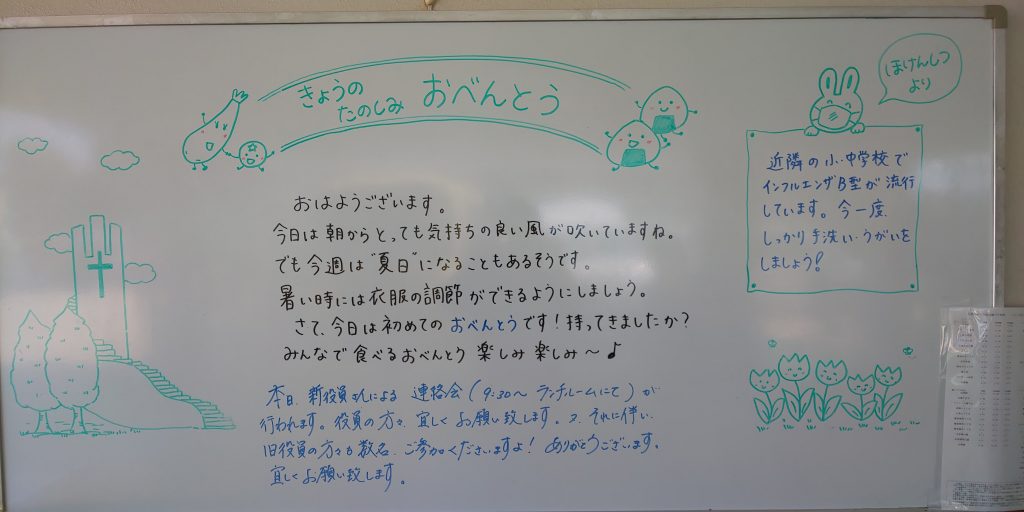 きょうの
たのしみ おべんとう
ほけんしつ
より
近隣の小・中学校で
インフルエンザB型が流行
しています。今一度、
しっかり手洗い・うがいを
しましょう!
おはようございます。
今日は朝からとっても気持ちの良い風が吹いていますね。
でも今週は"夏日"になることもあるそうです。
暑い時には衣服の調節ができるようにしましょう。
さて、今日は初めてのおべんとうです!持ってきましたか?
みんなで食べるおべんとう 楽しみ楽しみ〜♪
本日、新役員さんによる 連絡会(9:30〜 ランチルームにて)が
行われます。役員の方々、宜しくお願い致します。又、それに伴い、
旧役員の方々も数名、ご参加くださいますよ! ありがとうございます。
宜しくお願い致します。